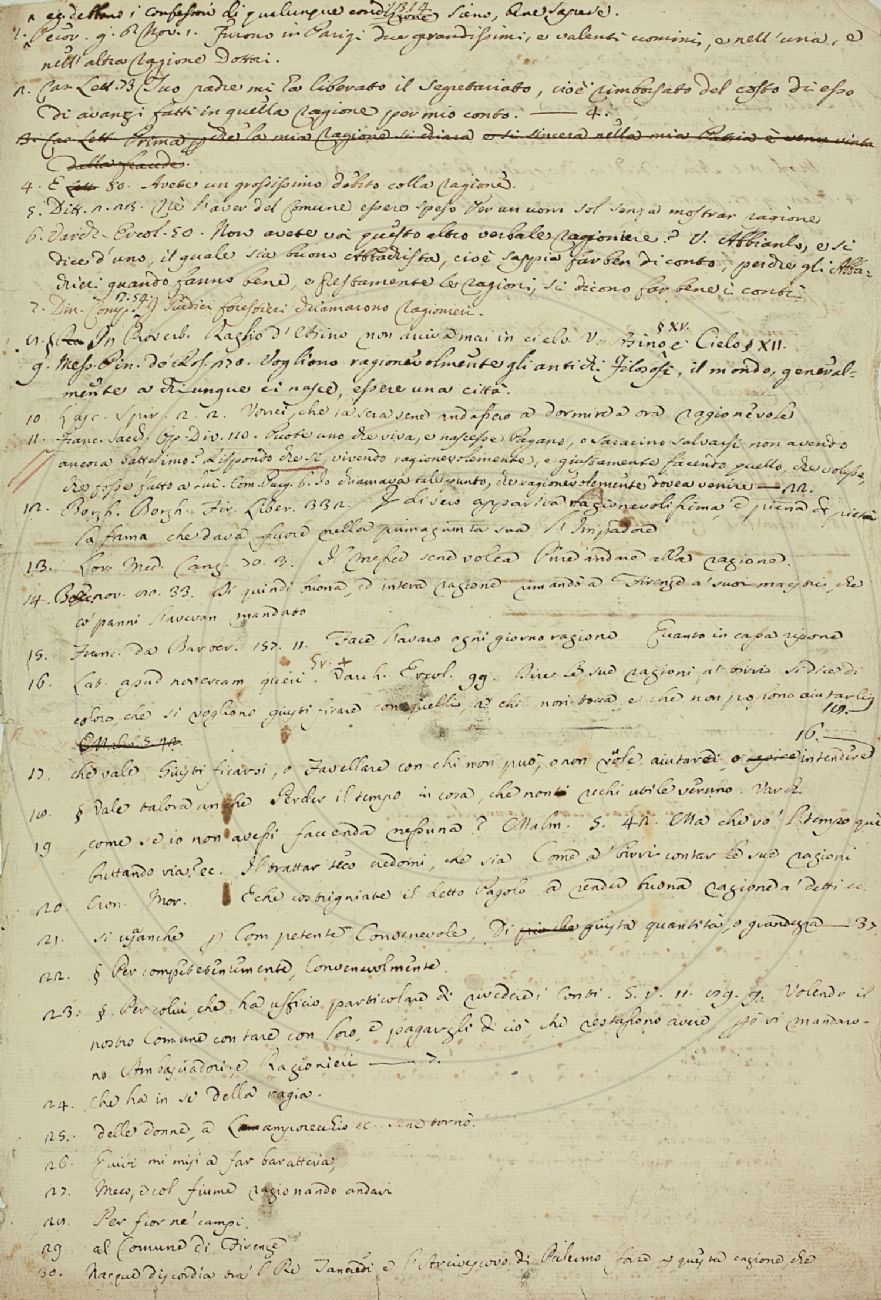 314
ec. dettono i confessori di qualunque condizione sieno, bene sapere.
1. Pecor. g. 6. Nov. 1. Furono in Parigi due grandissimi, e valenti uomini, e nell'una, e
nell'altra ragione dottori.
2. Car. Lett. 73 Suo padre mi ha liberato il segretariato, cioè rimborsato del costo di esso
di avanzi fatti in quella ragione per mio conto. — 4.
3. Car. Lett. Prima che la mia ragione si chiara o si sincera nella mia Patria è venuta
dalla
4. E Lett. 50. Avete un grossissimo debito colla ragione.
5. Ditt. 2. 28. Nè l'aver del Comune essere speso Per un uom sol senza mostrar ragione
6. Varch. Ercol. 50. Non avete voi questo altro verbale ragioniere? V. Abbianlo, e si
dice d'uno, il quale sia buono Abbachista, cioè sappia far ben di conto; perchè gli Abba-
chieri quando fanno bene, e prestamente le ragioni, si dicono far bene i conti.
7. Din. Comp. 2. 54. I Giudici forestieri chiamarono ragionieri.
8. § In Proverb. Raglio d'Asino non arriva mai in cielo V. Asino § XV. e Cielo § XII.
9. Mess. Pin. do. Ros. 170. Vogliono ragionevolmente gli antichi Filosofi, il mondo, general-
mente a chiunque ci nasce, essere una città.
10. Lasc. Spir. 2. 2. Vorrei, che la sera sene andassero a dormire a ora ragionevole
11. Franc. Sacch. Op. Div. 110. Puote uno che viva, e nascesse Pagano, o Saracino salvarsi non avendo
ancora battesimo? Rispondo che sì, vivendo ragionevolemente, e giustamente facendo quello, che volesse,
che fosse fatto a lui. Com. Purg. 6. Io chiamava tale punto, che ragionevolemente dovea venire — 22.
12. Borgh. Borgh. Fir. Liber. 332. di ciò apparisca ragionevolissima, e piena di pietà
la fama che dava fuore nella sua l'Imperadore
13. Lor. Med. Canz. 70. 3. sene volea Pure andare alla ragione.
14. Bocc. nov. 80. 33. Di quindi buona, ed intera ragione rimandò a Firenze a' suoi maestri, che
co' panni l'avevan mandato
15. Franc. da Barber. 157. 11. Face l'avaro ogni giorno ragione Quanto in cassa ripone
16. Lab. apud novercam queri. Gr. + Varch. Ercol. 99. Dire le sue ragioni a' birri si dice di
coloro, che si vogliono giustificare con quelli, a' chi non tocca, e che non possono aiutarli
18.—
16.—
17. che vale Giustificarsi, o Favellare con chi non può, o non vuole aiutarti, o intendere
18. § Vale talora anche Perder il tempo in cosa, che non ti rechi utile veruno. Varch.
19. , come se io non avessi faccenda nessuna? Malm. 5. 41. Ma che vo' il tempo qui
buttando via? ec. Il trattar teco credomi, che sia Come a' birri contar le sue ragioni
20. Cron. Mor. E che costrigniate il detto Pagolo a render buona ragione a' detti ec.
21. si usa anche per Competente, Convenevole, Di giusta quantità, o grandezza — 37.
22. § Per competentemente, Convenevolmente.
23. § Per colui, che ha ufficio particolare di rivedere i Conti. G. V. 11. 89. 9. Volendo il
nostro Comune contare con loro, e pagargli di ciò, che restassono avere però vi mandaro-
no Ambasciadori, e Ragionieri — 7.
24. che ha in se della ragia.
25. delle donne, a Lamporecchio ec. sene tornò.
26. Quivi mi misi a far baratteria,
27. Meco, e col fiume ragionando andai
28. Per fior ne' campi.
29. al Comune di Firenze
30. Nacque discordia tra 'l Re Tancredi e l'Arcivescovo di Palermo forse per questa cagione, che